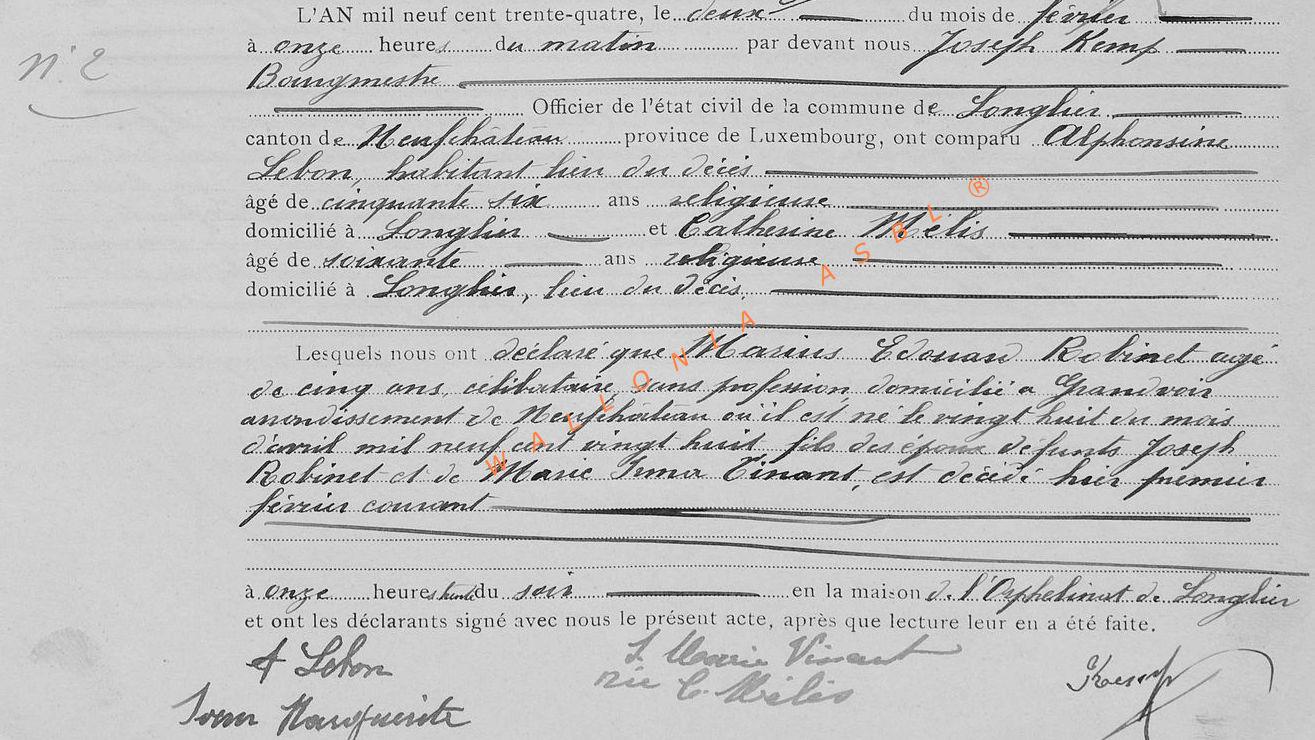 L'AN mil neuf cent trente-quatre, le deux du mois de février
N° 2
à onze heures du matin par devant nous Joseph Kemp
Bourgmestre
Officier de l'état civil de la commune de Longlier
canton de Neufchâteau province de Luxembourg, ont comparu Alphonsine
Lebon, habitant lieu du décès
âgé de cinquante six ans religieuse
domicilié à Longlier et Catherine Mélis
âgé de soixante ans religieuse
domicilié à Longlier, lieu du décès
Lesquels nous ont déclaré que Marius Edouard Robinet agé
de cinq ans, célibataire sans profession domicilié à Grandvoir
arrondissement de Neufchâteau où il est né le vingt huit du mois
d'avril mil neuf cent vingt huit fils des époux défunts Joseph
Robinet et de Marie Irma Tinant, est décédé hier premier
février courant
à onze heures trente du soir en la maison de l'Orphelinat de Longlier
et ont les déclarants signé avec nous le présent acte, après que lecture leur en a été faite.
A Lebon S. Marie Vincent Kemp
née C. Mélis
Soeur Marguerite
WALLONIA ASBL ®